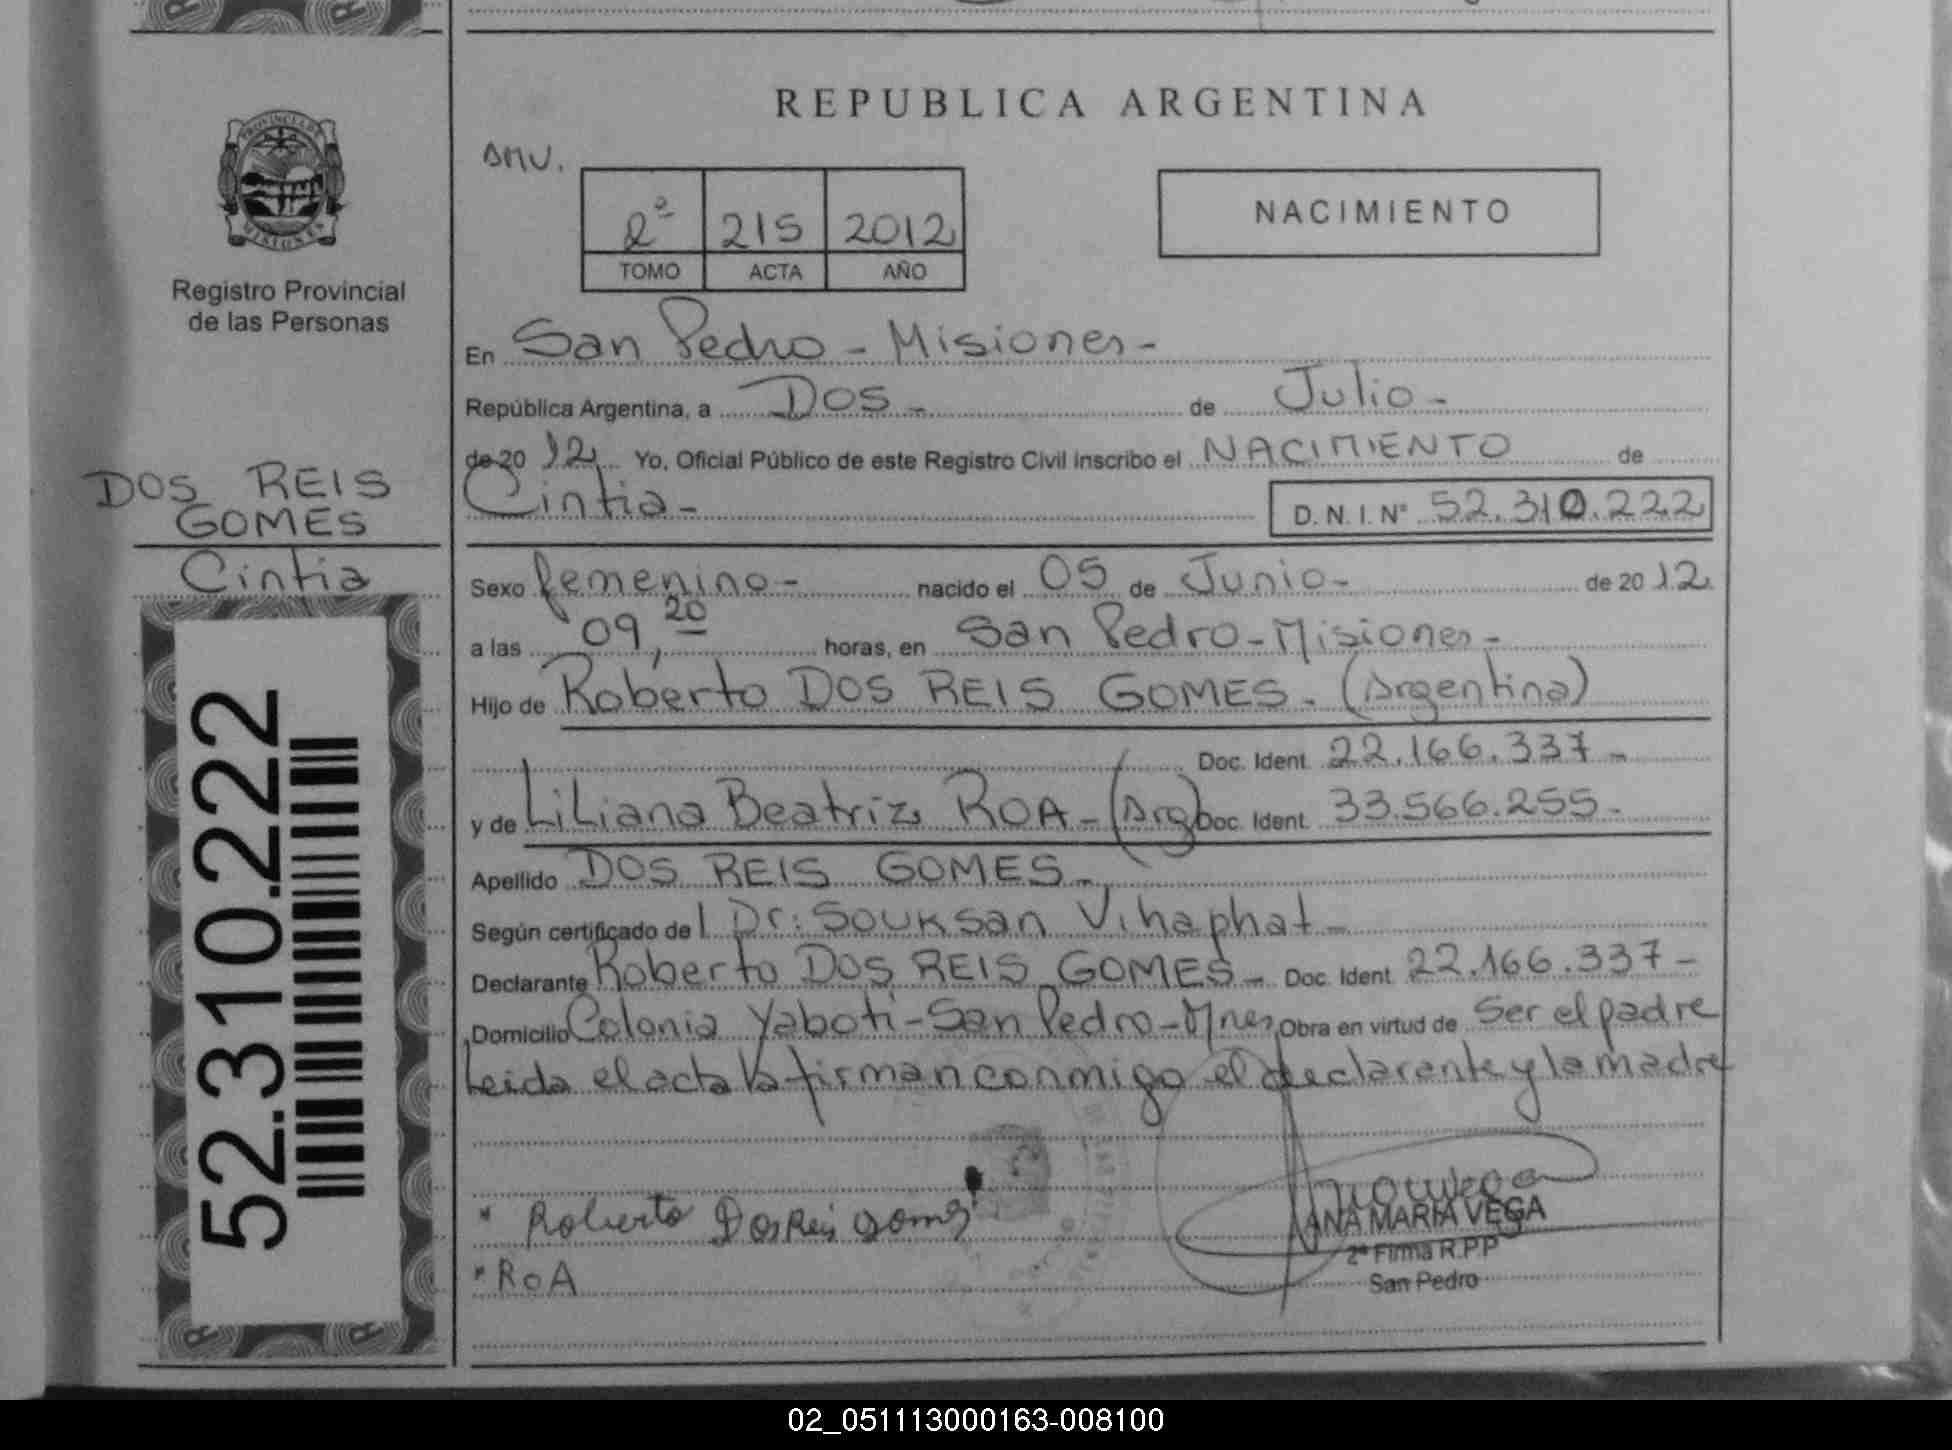 REPUBLICA ARGENTINA
PROVINCIA DE
MISIONES
Registro Provincial
de las Personas
DOS REIS
GOMES
Cintia
52.310.222
AMV.
2º 215 2012
TOMO ACTA AÑO
NACIMIENTO
En San Pedro - Misiones -
República Argentina, a Dos - de Julio -
de 20 12 Yo, Oficial Público de este Registro Civil inscribo el NACIMIENTO de
Cintia - D.N.I. Nº 52.310.222
Sexo femenino - nacido el 05 de Junio - de 20 12
a las 09,20 horas, en San Pedro - Misiones -
Hijo de Roberto DOS REIS GOMES - (Argentina)
Doc. Ident. 22.166.337 -
y de Liliana Beatriz ROA - (Arg) Doc. Ident. 33.566.255 -
Apellido DOS REIS GOMES -
Según certificado del Dr: Souksan Vihaphat -
Declarante Roberto DOS REIS GOMES - Doc. Ident. 22.166.337 -
Domicilio Colonia Yaboti - San Pedro - Mnes, Obra en virtud de Ser el padre
Leida el acta la firman conmigo el declarante y la madre
* Roberto Dos Reis Gomes
* ROA
ANA MARIA VEGA
2ª Firma R.P.P
San Pedro
02_051113000163-008100